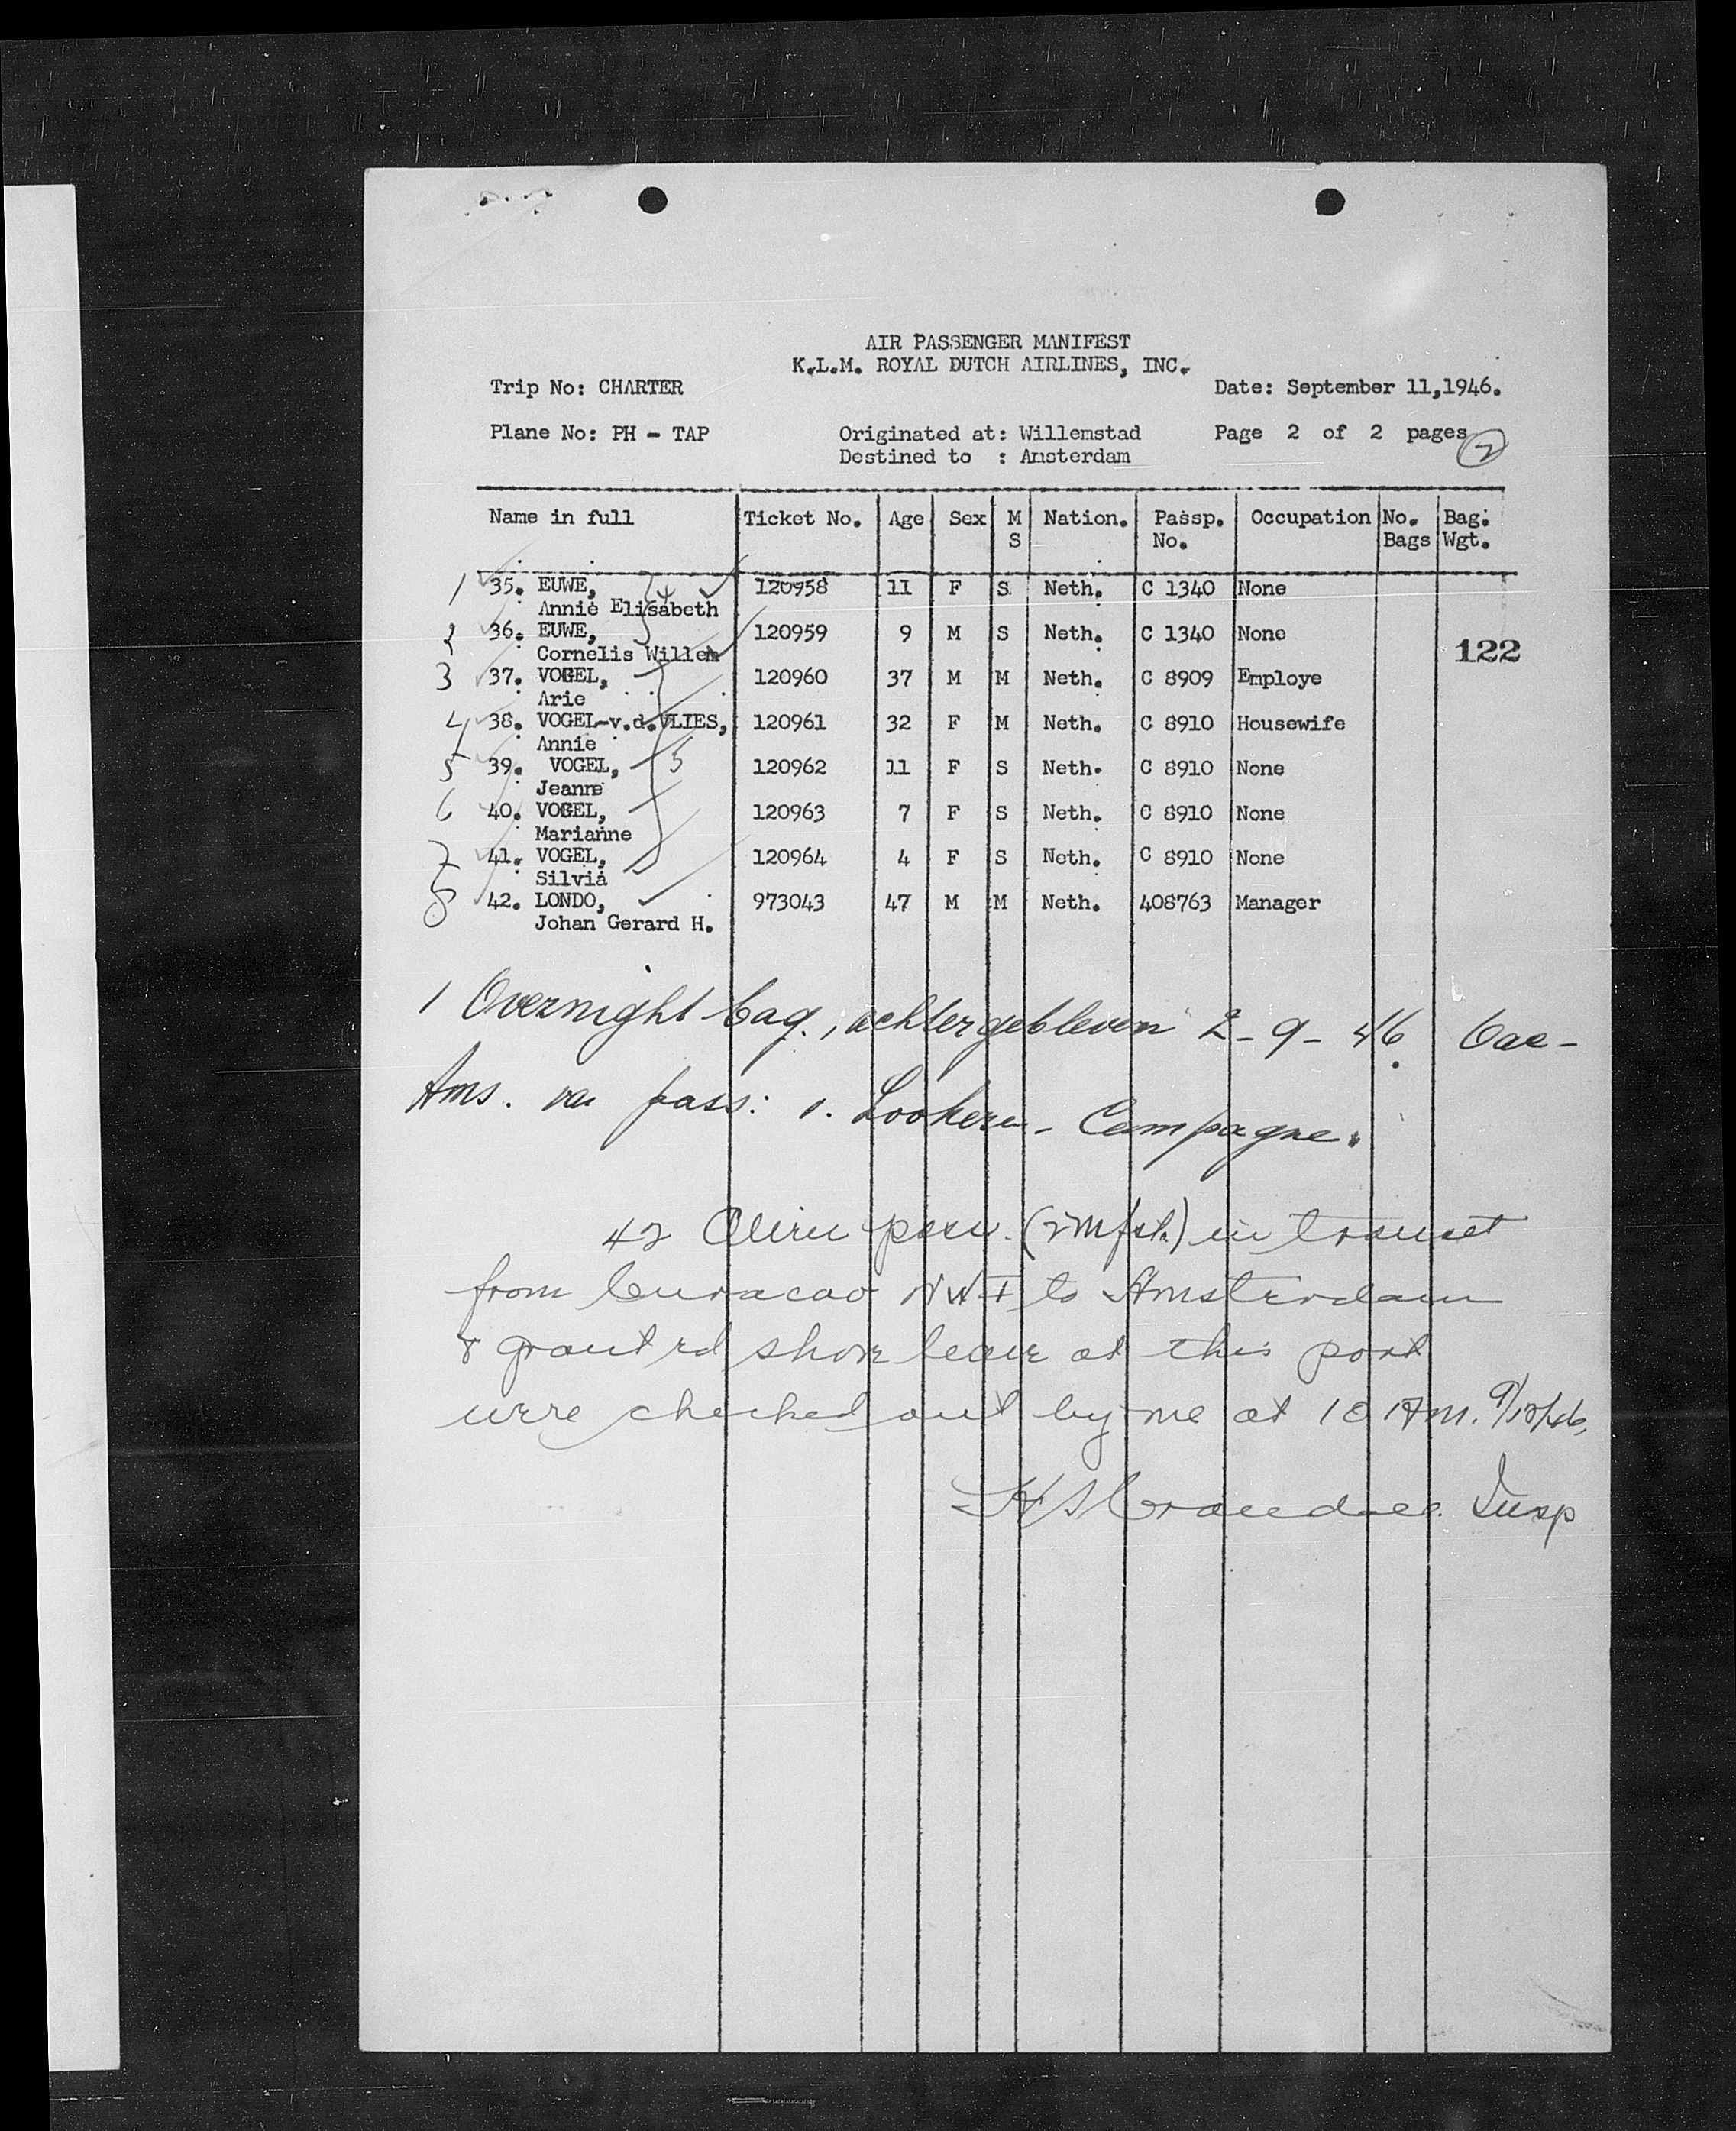 AIR PASSENGER MANIFEST
K.L.M. ROYAL DUTCH AIRLINES, INC.
Trip No: CHARTER Date: September 11,1946.
Plane No: PH - TAP Originated at: Willemstad Page 2 of 2 pages 2
Destined to : Amsterdam
Name in full Ticket No. Age Sex M Nation. Passp. Occupation No. Bag.
S No. Bags Wgt.
1 35. EUWE, 120958 11 F S Neth. C 1340 None
Annie Elisabeth
2 36. EUWE, 120959 9 M S Neth. C 1340 None
Cornelis Willem 122
3 37. VOGEL, 120960 37 M M Neth. C 8909 Employe
Arie
4 38. VOGEL-v.d.VLIES, 120961 32 F M Neth. C 8910 Housewife
Annie
5 39. VOGEL, 5 120962 11 F S Neth. C 8910 None
Jeanne
6 40. VOGEL, 120963 7 F S Neth. C 8910 None
Marianne
7 41. VOGEL, 120964 4 F S Neth. C 8910 None
Silvia
8 42. LONDO, 973043 47 M M Neth. 408763 Manager
Johan Gerard H.
1 Overnight bag., achtergebleven 2-9-46
Ams. pass: Campagne.
42 Alien pass. (2 Mfst.) in transit
from Curacao NWI to Amsterdam
& granted shore leave at this port
were checked out by me at 10 AM. 9/12/46.
Insp